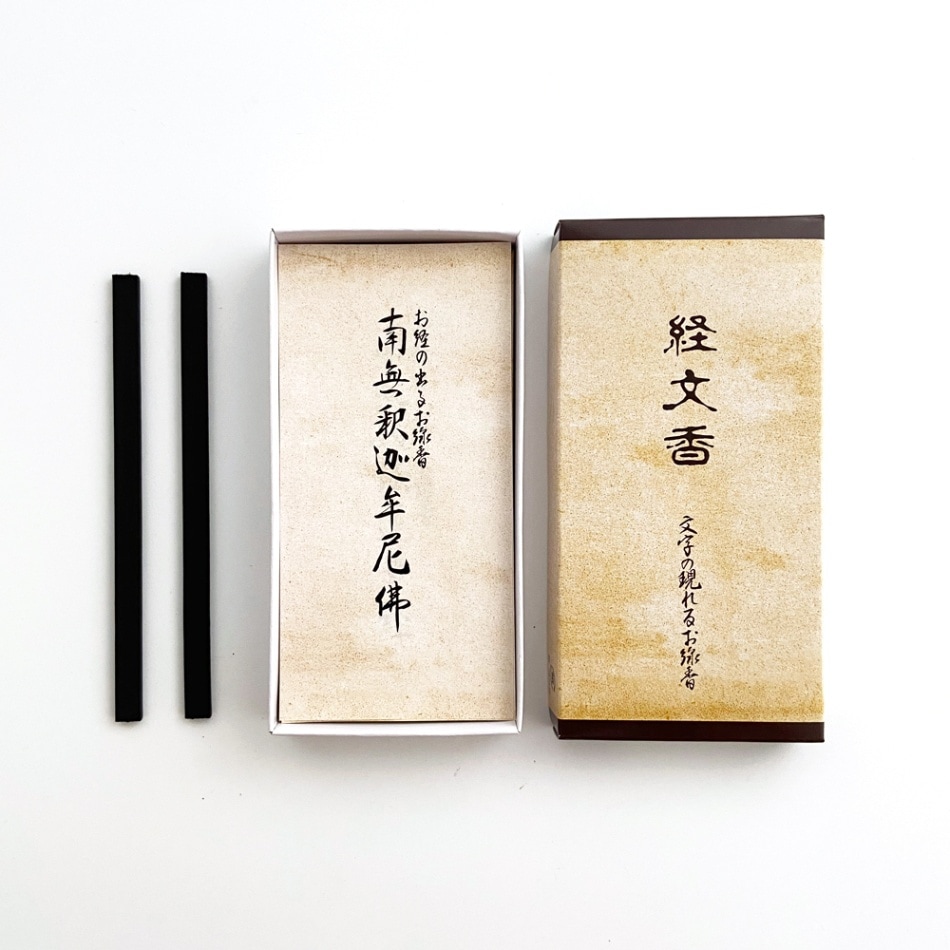 経文香
文字の現れるお線香
お経の出るお線香
南無釈迦牟尼佛